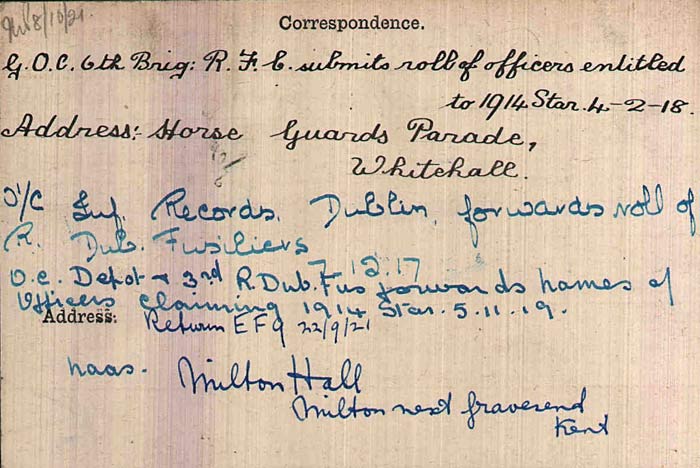 8/10/21
Correspondence.
G.O.C. 6th Brig: R. F. C. submits roll of officers entitled
to 1914 Star. 4-2-18.
Address: Horse Guards Parade,
Whitehall.
O/C Inf. Records, Dublin, forwards roll of
R. Dub. Fusiliers
7.12.17
O.C. Depot & 3rd R. Dub. Fus forwards names of
Officers claiming 1914 Star. 5.11.19.
Address: Return EF9 22/9/21
Naas.
Milton Hall
Milton next Gravesend
Kent